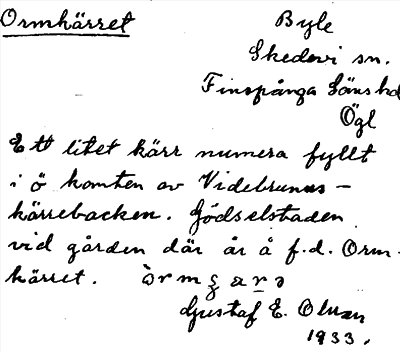 Ormkärret
Byle
Skedevi sn.
Finspånga läns hd
Ögl
Ett litet kärr numera fyllt
i ö kanten av Videbrunns-
kärrebacken. Gödselstaden
vid gården där är å f.d. Orm-
kärret.
Gustaf E. Olsson
1933.